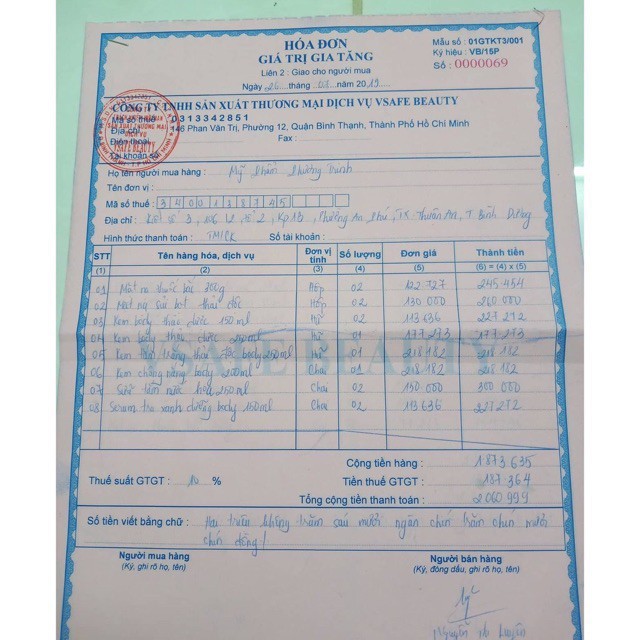 HÓA ĐƠN
GIÁ TRỊ GIA TĂNG
Liên 2 : Giao cho người mua
Ngày 26 tháng 03 năm 2019
Mẫu số : 01GTKT3/001
Ký hiệu : VB/15P
Số : 0000069
CÔNG TY TNHH SẢN XUẤT THƯƠNG MẠI DỊCH VỤ VSAFE BEAUTY
Mã số thuế 0313342851
Địa chỉ 146 Phan Văn Trị, Phường 12, Quận Bình Thạnh, Thành Phố Hồ Chí Minh
Điện thoại Fax :
Tài khoản số
VSAFE BEAUTY
Họ tên người mua hàng : Mỹ Phẩm Phương Trinh
Tên đơn vị :
Mã số thuế : 3400138745
Địa chỉ : tổ 2, Kp 1B, Phường An Phú, TX Thuận An, T Bình Dương
Hình thức thanh toán : TM/CK Số tài khoản :
STT Tên hàng hóa, dịch vụ Đơn vị tính Số lượng Đơn giá Thành tiền
(1) (2) (3) (4) (5) (6) = (4) x (5)
01 Mặt nạ thuốc bắc 300g Hộp 02 122.727 245.454
02 Mặt nạ sủi bọt thải độc Hộp 02 130 000 260 000
03 Kem body thảo dược 150ml Hũ 02 113 636 227 272
04 Kem body thảo dược 250ml Hũ 01 177 273 177 273
05 Kem tắm trắng thảo dược body 250ml Hũ 01 218 182 218 182
06 Kem chống nắng body 200ml Chai 01 218 182 218 182
07 Sữa tắm nước hoa 250ml Chai 02 150 000 300 000
08 Serum trà xanh dưỡng body 150ml Chai 02 113 636 227 272
SAFE BEAUTY
Cộng tiền hàng : 1.873.635
Thuế suất GTGT : 10 % Tiền thuế GTGT : 187 364
Tổng cộng tiền thanh toán : 2 060 999
Số tiền viết bằng chữ : Hai triệu không trăm sáu mươi ngàn chín trăm chín mươi
chín đồng /
Người mua hàng Người bán hàng
(Ký, ghi rõ họ, tên) (Ký, đóng dấu, ghi rõ họ, tên)
Nguyễn Luyện